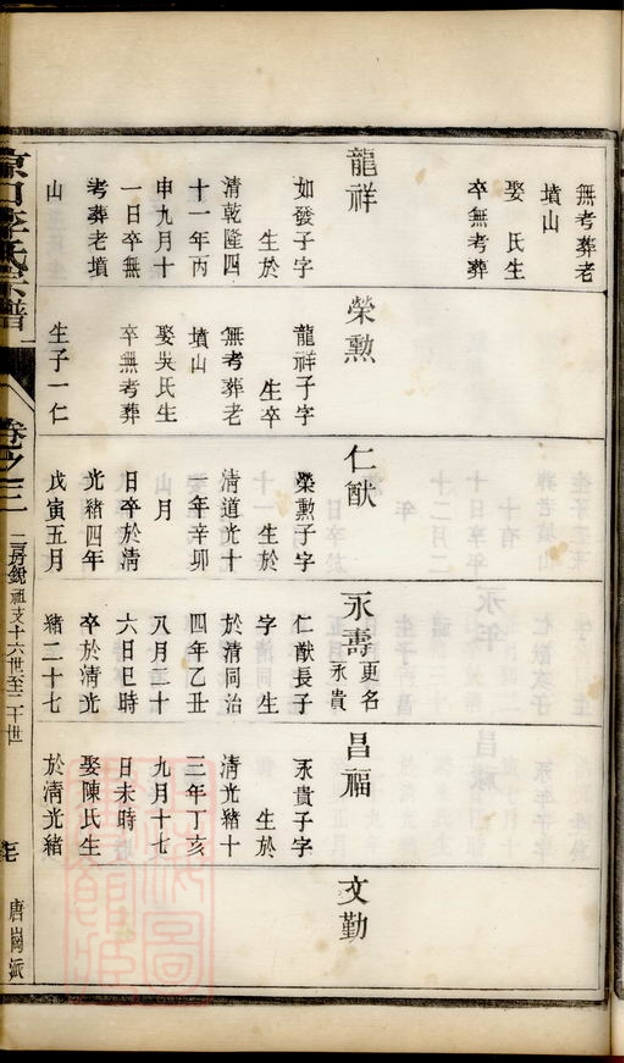 無考葬老
墳山
娶　氏生
卒無考葬
龍祥
如發子字
生於
清乾隆四
十一年丙
申九月十
一日卒無
考葬老墳
山
榮勲
龍祥子字
生卒
無考葬老
墳山
娶吳氏生
卒無考葬
生子一仁
仁猷
榮勲子字
生於
清道光十
年辛卯
山月
日卒於清
光緒四年
戊寅五月
永壽 更名永貴
仁猷長子
字　生
於清同治
四年乙丑
八月二十
六日巳時
卒於清光
緒二十七
昌福
永貴子字
生於
清光緒十
三年丁亥
九月十七
日未時
娶陳氏生
於清光緒
文勤
京口李氏宗譜
卷之三
二房銳祖支十六世至二十世
唐崗派